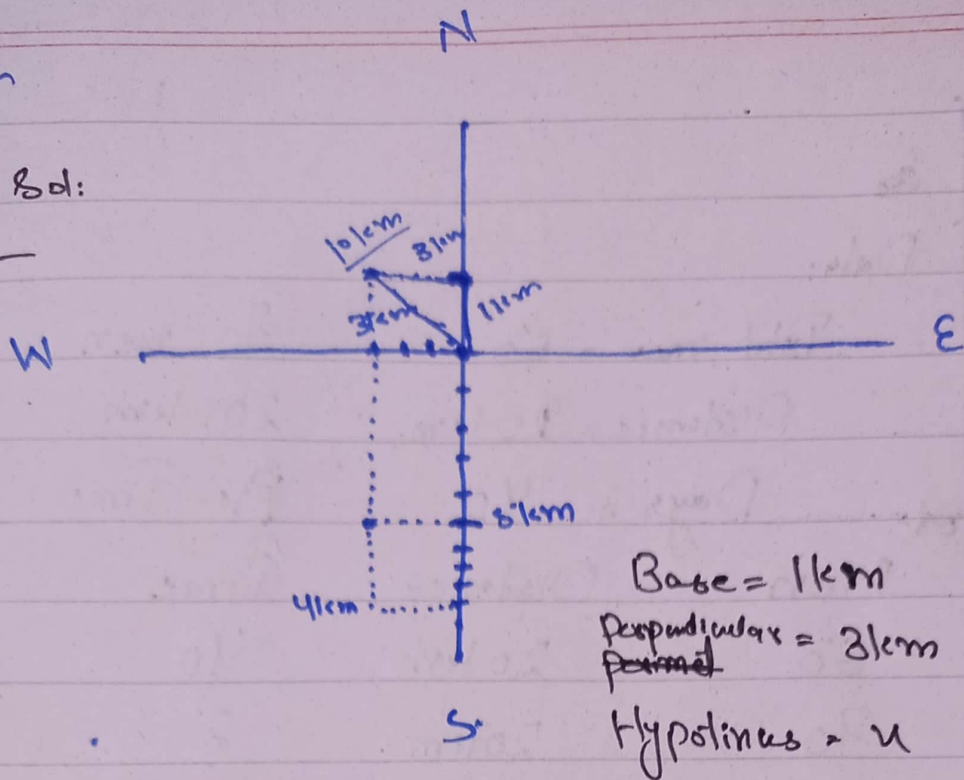 N
Sol:
10km
3km
1km
3km
W
E
5km
4km
Base = 1km
Perpendicular = 3km
S.
Hypotinus = x